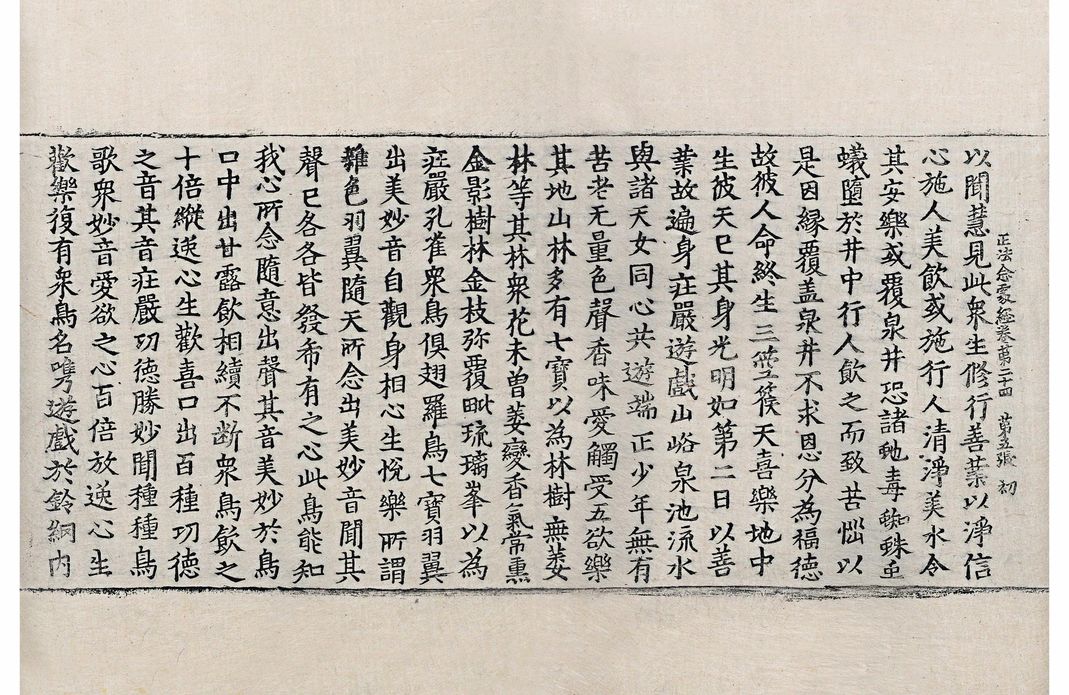 正法念處經卷第二十四 第五張 初
以聞慧見此衆生修行善業以淨信
心施人美飲或施行人清淨美水令
其安樂或覆泉井恐諸虵毒蜘蛛虫
蟻墮於井中行人飲之而致苦惱以
是因緣覆盖泉井不求恩分為福德
故彼人命終生三箜篌天喜樂地中
生彼天已其身光明如第二日以善
業故遍身莊嚴遊戲山峪泉池流水
與諸天女同心共遊端正少年無有
苦老无量色聲香味愛觸受五欲樂
其地山林多有七寶以為林樹無萎
林等其林衆花未曽萎變香氣常熏
金影樹林金枝弥覆毗琉璃峯以為
莊嚴孔雀衆鳥俱翅羅鳥七寶羽翼
出美妙音自觀身相心生悅樂所謂
雜色羽翼隨天所念出美妙音聞其
聲已各各皆發希有之心此鳥能知
我心所念隨意出聲其音美妙於鳥
口中出甘露飲相續不断衆鳥飲之
十倍縱逸心生歡喜口出百種功德
之音其音莊嚴功德勝妙聞種種鳥
歌衆妙音愛欲之心百倍放逸心生
歡樂復有衆鳥名㘅遊戲於鈴網内